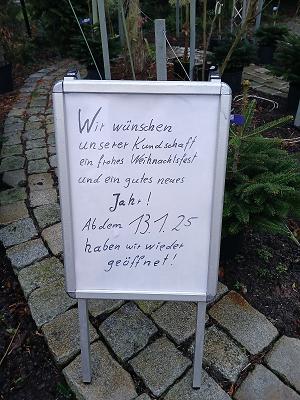 Wir wünschen
unserer Kundschaft
ein frohes Weihnachtsfest
und ein gutes neues
Jahr!
Ab dem 13.1.25
haben wir wieder
geöffnet!